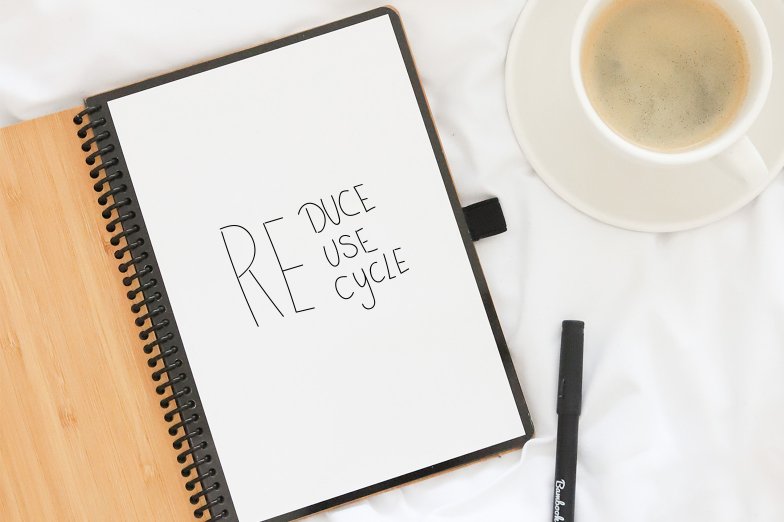 RE DUCE
USE
CYCLE
Bambook